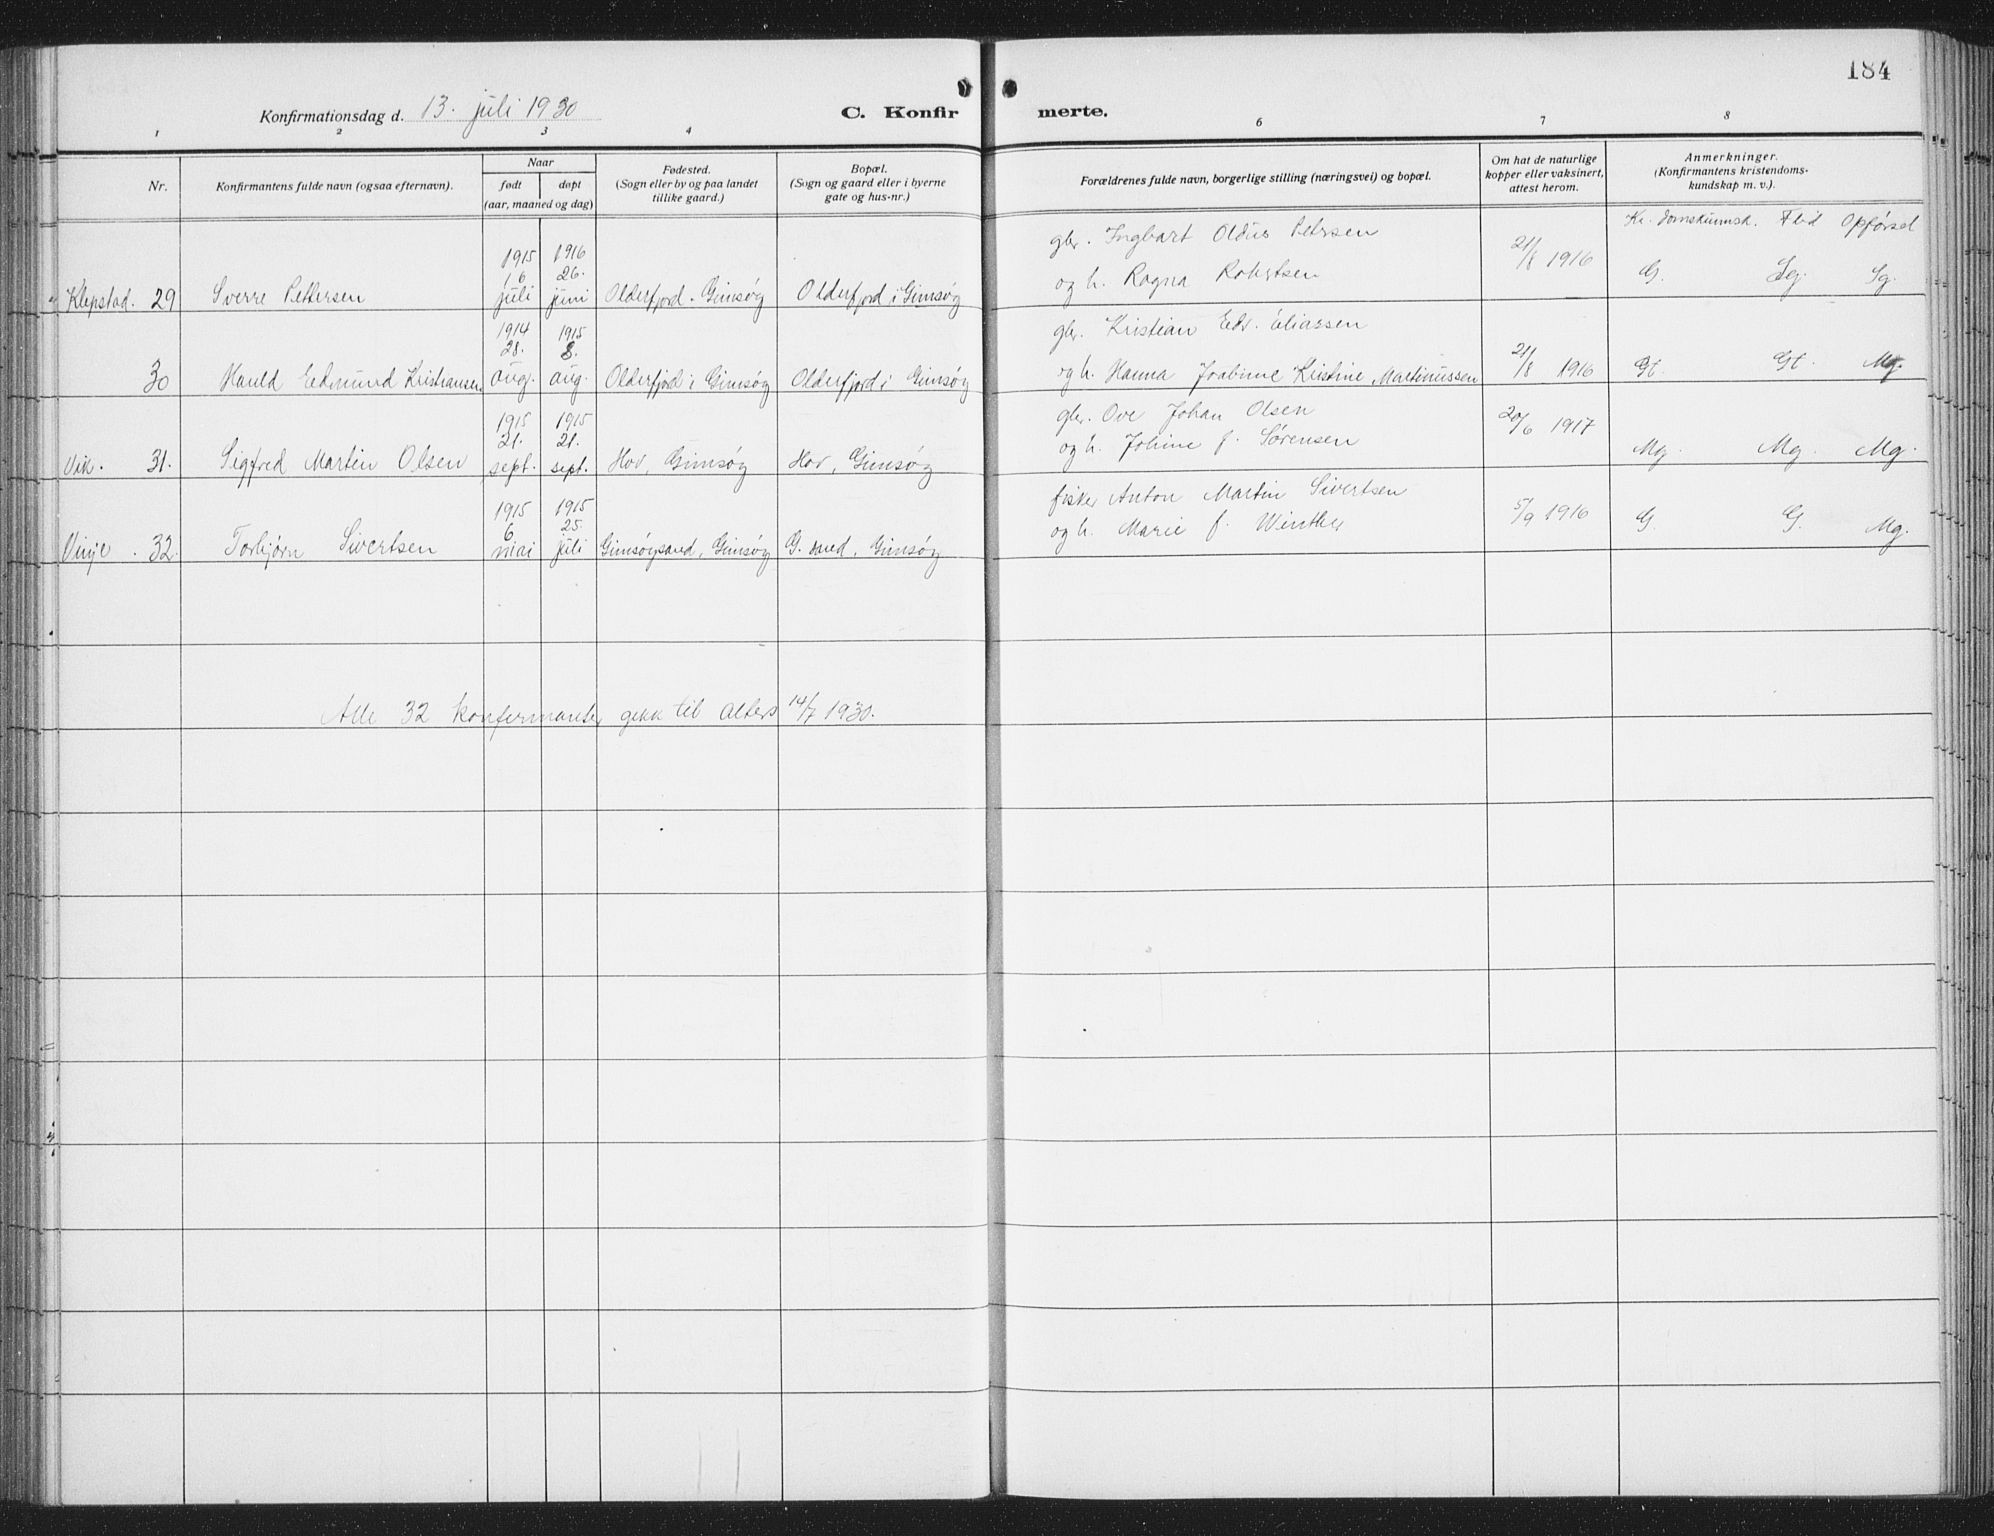 184
Konfirmationsdag d. 13. juli 1930
C. Konfirmerte.
1 2 3 4 6 7 8
Nr.
Konfirmantens fulde navn (ogsaa efternavn).
Naar
født døpt
(aar, maaned og dag)
Fødested.
(Sogn eller by og paa landet
tillike gaard.)
Bopæl.
(Sogn og gaard eller i byerne
gate og hus-nr.)
Forældrenes fulde navn, borgerlige stilling (næringsvei) og bopæl.
Om hat de naturlige
kopper eller vaksinert,
attest herom.
Anmerkninger.
(Konfirmantens kristendoms-
kundskap m. v.).
Kr. domskunnsk. Flid Opførsel
Klepstad. 29 Sverre Pettersen
1915 16 juli
1916 26. juni
Olderfjord. Gimsøy
Olderfjord i Gimsøy
gbr. Ingbart Oldus Petersen
og h. Ragna Robertsen
21/8 1916
G. Sg. Sg.
30 Harald Edmund Kristiansen
1914 28. aug.
1915 8. aug.
Olderfjord i Gimsøy
Olderfjord i Gimsøy
gbr. Kristian Edv. Eliassen
og h. Hanna Joabine Kristine Martinussen
21/8 1916
Gt. Gt. Mg.
Vik. 31. Sigfred Martin Olsen
1915 21. sept.
1915 21. sept.
Hov, Gimsøy
Hov, Gimsøy
gbr. Ove Johan Olsen
og h. Johine f. Sørensen
20/6 1917
Mg. Mg. Mg.
Vinje. 32. Torbjørn Sivertsen
1915 6. mai
1915 25. juli
Gimsøysand, Gimsøy
G. sand, Gimsøy
fisker Anton Martin Sivertsen
og h. Marie f. Winther
5/9 1916
G. G. Mg.
Alle 32 konfirmanter gikk til alters 14/7 1930.